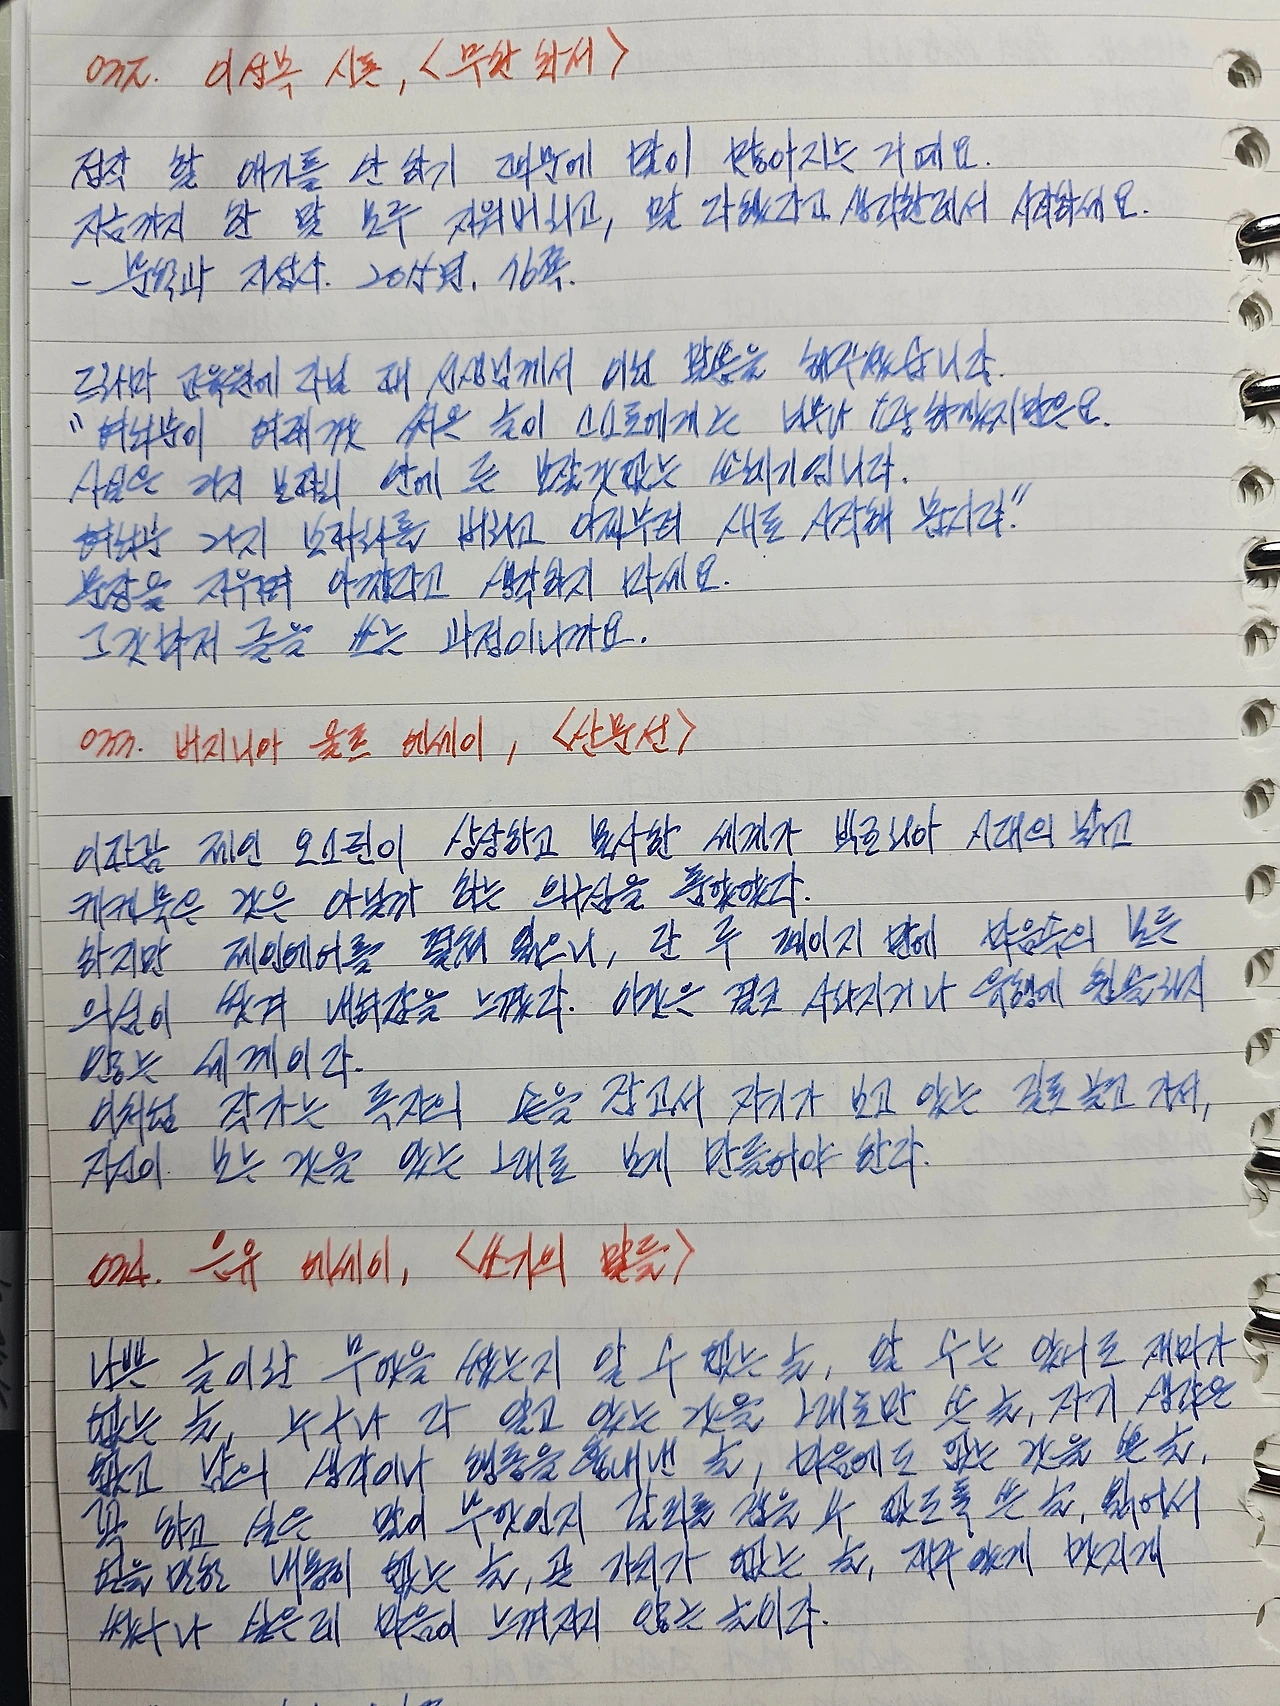 032. 이성복 시론, <무한화서>
정작 할 얘기를 안 하기 때문에 말이 많아지는 거예요.
지금까지 한 말 모두 지워버리고, 말 다했다고 생각한 데서 시작하세요.
- 문학과 지성사. 2015년. 76쪽.
드라마 교육원에 다닐 때 선생님께서 이런 말씀을 해주셨습니다.
"여러분이 여태껏 써온 글이 스스로에게는 너무나 소중하겠지만은요.
사실은 가지 보따리 안에 든 보잘것없는 쓰레기입니다.
여러분 가지 보따리를 버리고 이제부터 새로 시작해 봅시다."
문장을 지우며 아깝다고 생각하지 마세요.
그것마저 글을 쓰는 과정이니까요.
033. 버지니아 울프 에세이, <산문선>
이따금 제인 오스틴이 상상하고 묘사한 세계가 빅토리아 시대의 낡고
케케묵은 것은 아닐까 하는 의심을 품었었다.
하지만 제인에어를 펼쳐 읽으니, 단 두 페이지 만에 마음속의 모든
의심이 씻겨 내려감을 느꼈다. 이것은 결코 사라지거나 유행에 휩쓸리지
않는 세계이다.
이처럼 작가는 독자의 손을 잡고서 자기가 보고 있는 길로 끌고 가서,
자신이 보는 것을 있는 그대로 보게 만들어야 한다.
034. 은유 에세이, <쓰기의 말들>
나쁜 글이란 무엇을 썼는지 알 수 없는 글, 알 수는 있어도 재미가
없는 글, 누구나 다 알고 있는 것을 그대로만 쓴 글, 자기 생각은
없고 남의 생각이나 행동을 흉내낸 글, 마음에도 없는 것을 쓴 글,
꼭 하고 싶은 말이 무엇인지 갈피를 잡을 수 없도록 쓴 글, 읽어서
얻을 만한 내용이 없는 글, 곧 가치가 없는 글, 재주 있게 멋지게
썼구나 싶은데 마음이 느껴지지 않는 글이다.